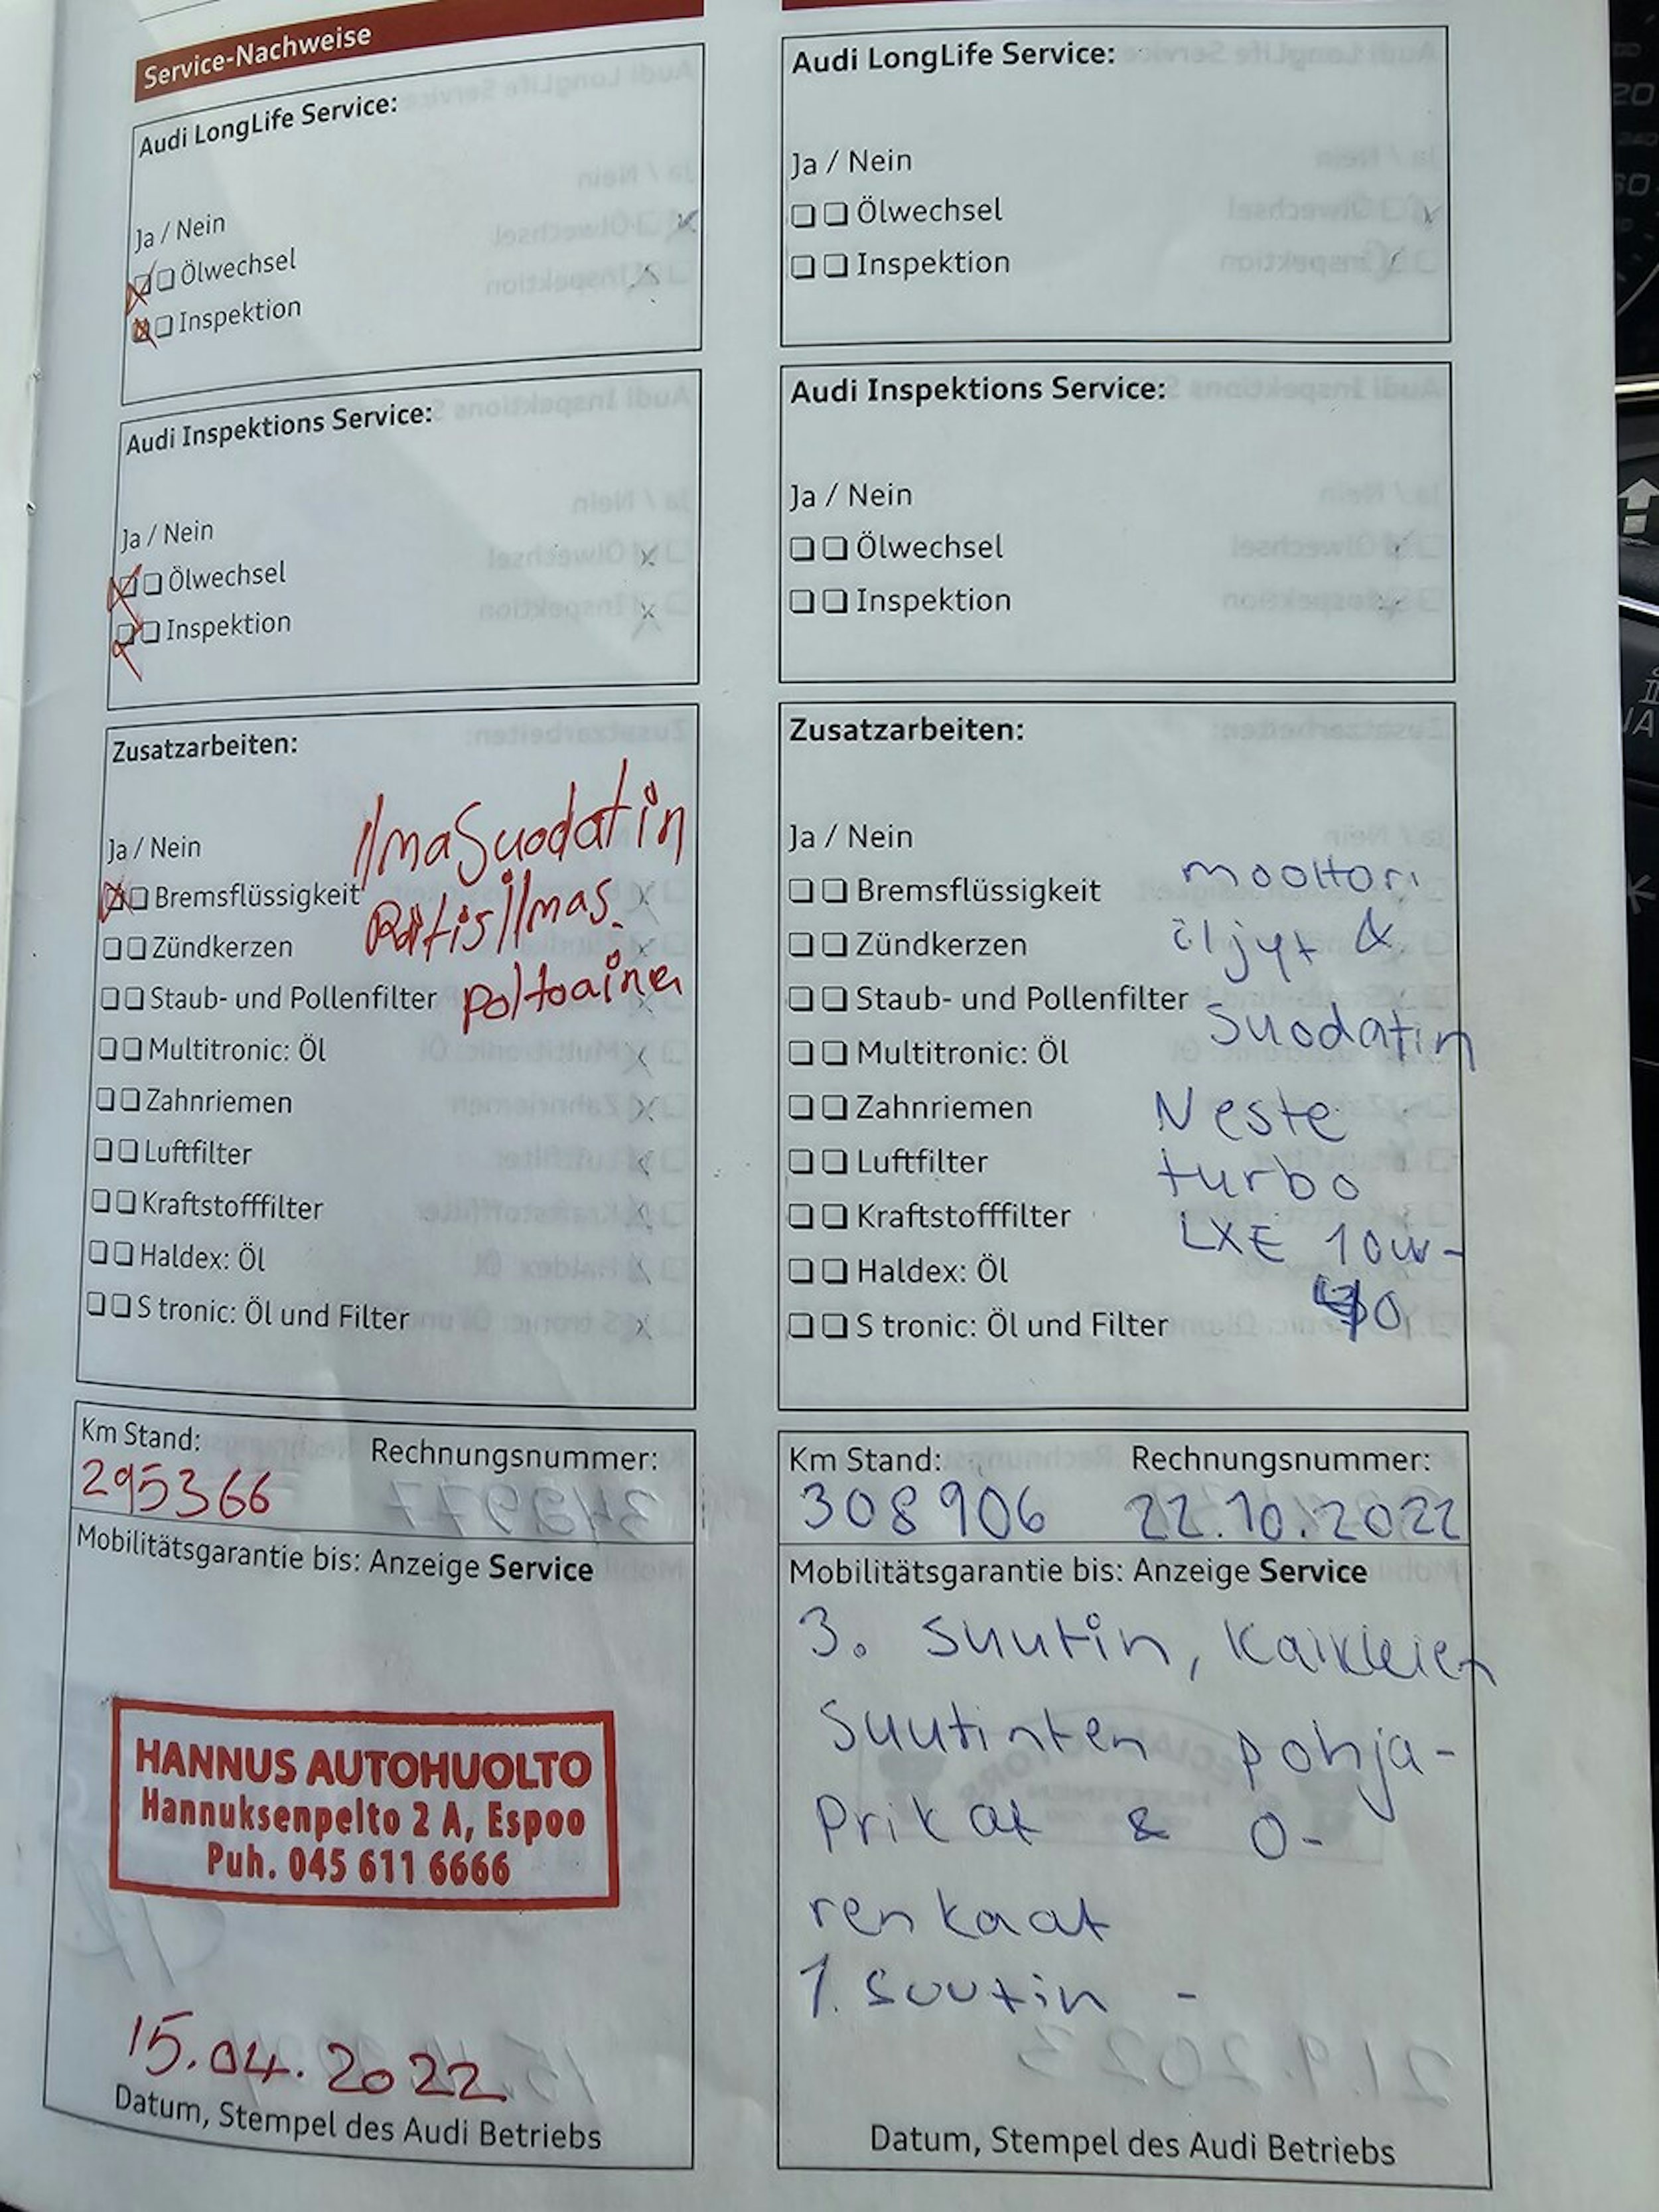 Service-Nachweise
Audi LongLife Service:
Ja / Nein
Ölwechsel
Inspektion
Audi Inspektions Service:
Ja / Nein
Ölwechsel
Inspektion
Zusatzarbeiten:
Ilmasuodatin
Ratisilmas.
poltoaine
Ja / Nein
Bremsflüssigkeit
Zündkerzen
Staub- und Pollenfilter
Multitronic: Öl
Zahnriemen
Luftfilter
Kraftstofffilter
Haldex: Öl
S tronic: Öl und Filter
Km Stand: Rechnungsnummer:
295366
Mobilitätsgarantie bis: Anzeige Service
HANNUS AUTOHUOLTO
Hannuksenpelto 2 A, Espoo
Puh. 045 611 6666
15.04.2022
Datum, Stempel des Audi Betriebs
Audi LongLife Service:
Ja / Nein
Ölwechsel
Inspektion
Audi Inspektions Service:
Ja / Nein
Ölwechsel
Inspektion
Zusatzarbeiten:
Ja / Nein
Bremsflüssigkeit
Zündkerzen
Staub- und Pollenfilter
Multitronic: Öl
Zahnriemen
Luftfilter
Kraftstofffilter
Haldex: Öl
S tronic: Öl und Filter
moottori
öljyt &
suodatin
Neste
turbo
LXE 10w-
Km Stand: Rechnungsnummer:
308906 22.10.2022
Mobilitätsgarantie bis: Anzeige Service
3. suutin, kaikkien
suutinten pohja-
prikat & O-
renkaat
1. suutin -
Datum, Stempel des Audi Betriebs